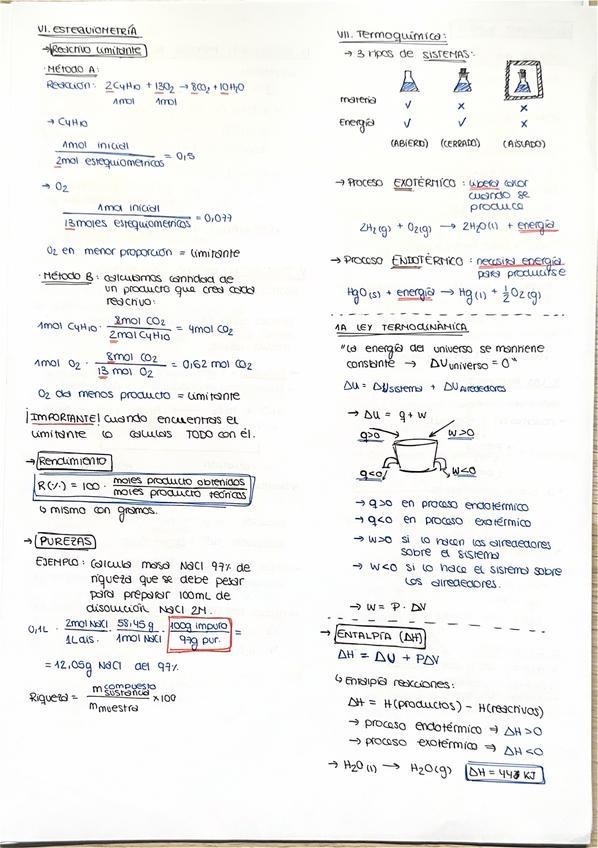 VI. ESTEQUIOMETRÍA
→ Reactivo limitante
· MÉTODO A:
Reacción: 2C4H10 + 13O2 → 8CO2 + 10H2O
1mol 1mol
→ C4H10
1mol inicial / 2mol estequiometricos = 0,5
→ O2
1mol inicial / 13moles estequiometricos = 0,077
O2 en menor proporción = limitante
· Método B: calculamos cantidad de
un producto que crea cada
reactivo:
1mol C4H10 · 8mol CO2 / 2mol C4H10 = 4mol CO2
1mol O2 · 8mol CO2 / 13 mol O2 = 0,62 mol CO2
O2 da menos producto = limitante
¡IMPORTANTE! Cuando encuentras el
limitante lo calculas TODO con él.
→ Rendimiento
R(%) = 100 · moles producto obtenidos / moles producto teóricos
↳ mismo con gramos.
→ PUREZAS
EJEMPLO: Calcula masa NaCl 97% de
riqueza que se debe pesar
para preparar 100mL de
disolución NaCl 2M.
0,1L · 2mol NaCl / 1L dis. · 58,45g / 1mol NaCl · 100g impuro / 97g pur. =
= 12,05g NaCl del 97%
Riqueza = m compuesto sustancia / m muestra × 100
VII. Termoquímica:
→ 3 tipos de SISTEMAS:
materia ✓ × ×
energía ✓ ✓ ×
(ABIERTO) (CERRADO) (AISLADO)
→ PROCESO EXOTÉRMICO: libera calor
cuando se
produce
2H2(g) + O2(g) → 2H2O(l) + energía
→ PROCESO ENDOTÉRMICO: necesita energía
para producirse
HgO(s) + energía → Hg(l) + ½O2(g)
1A LEY TERMODINÀMICA
"La energía del universo se mantiene
constante → ΔU universo = 0"
ΔU = ΔU sistema + ΔU Alrededores
→ ΔU = q + w
q>0 w>0
q<0 w<0
→ q>0 en proceso endotérmico
→ q<0 en proceso exotérmico
→ w>0 si lo hacen los alrededores
sobre el sistema
→ w<0 si lo hace el sistema sobre
los alrededores.
→ W = P · ΔV
→ ENTALPÍA (ΔH)
ΔH = ΔU + PΔV
↳ Entalpía reacciones:
ΔH = H(productos) - H(reactivos)
→ proceso endotérmico ⇒ ΔH>0
→ proceso exotérmico ⇒ ΔH<0
→ H2O(l) → H2O(g)